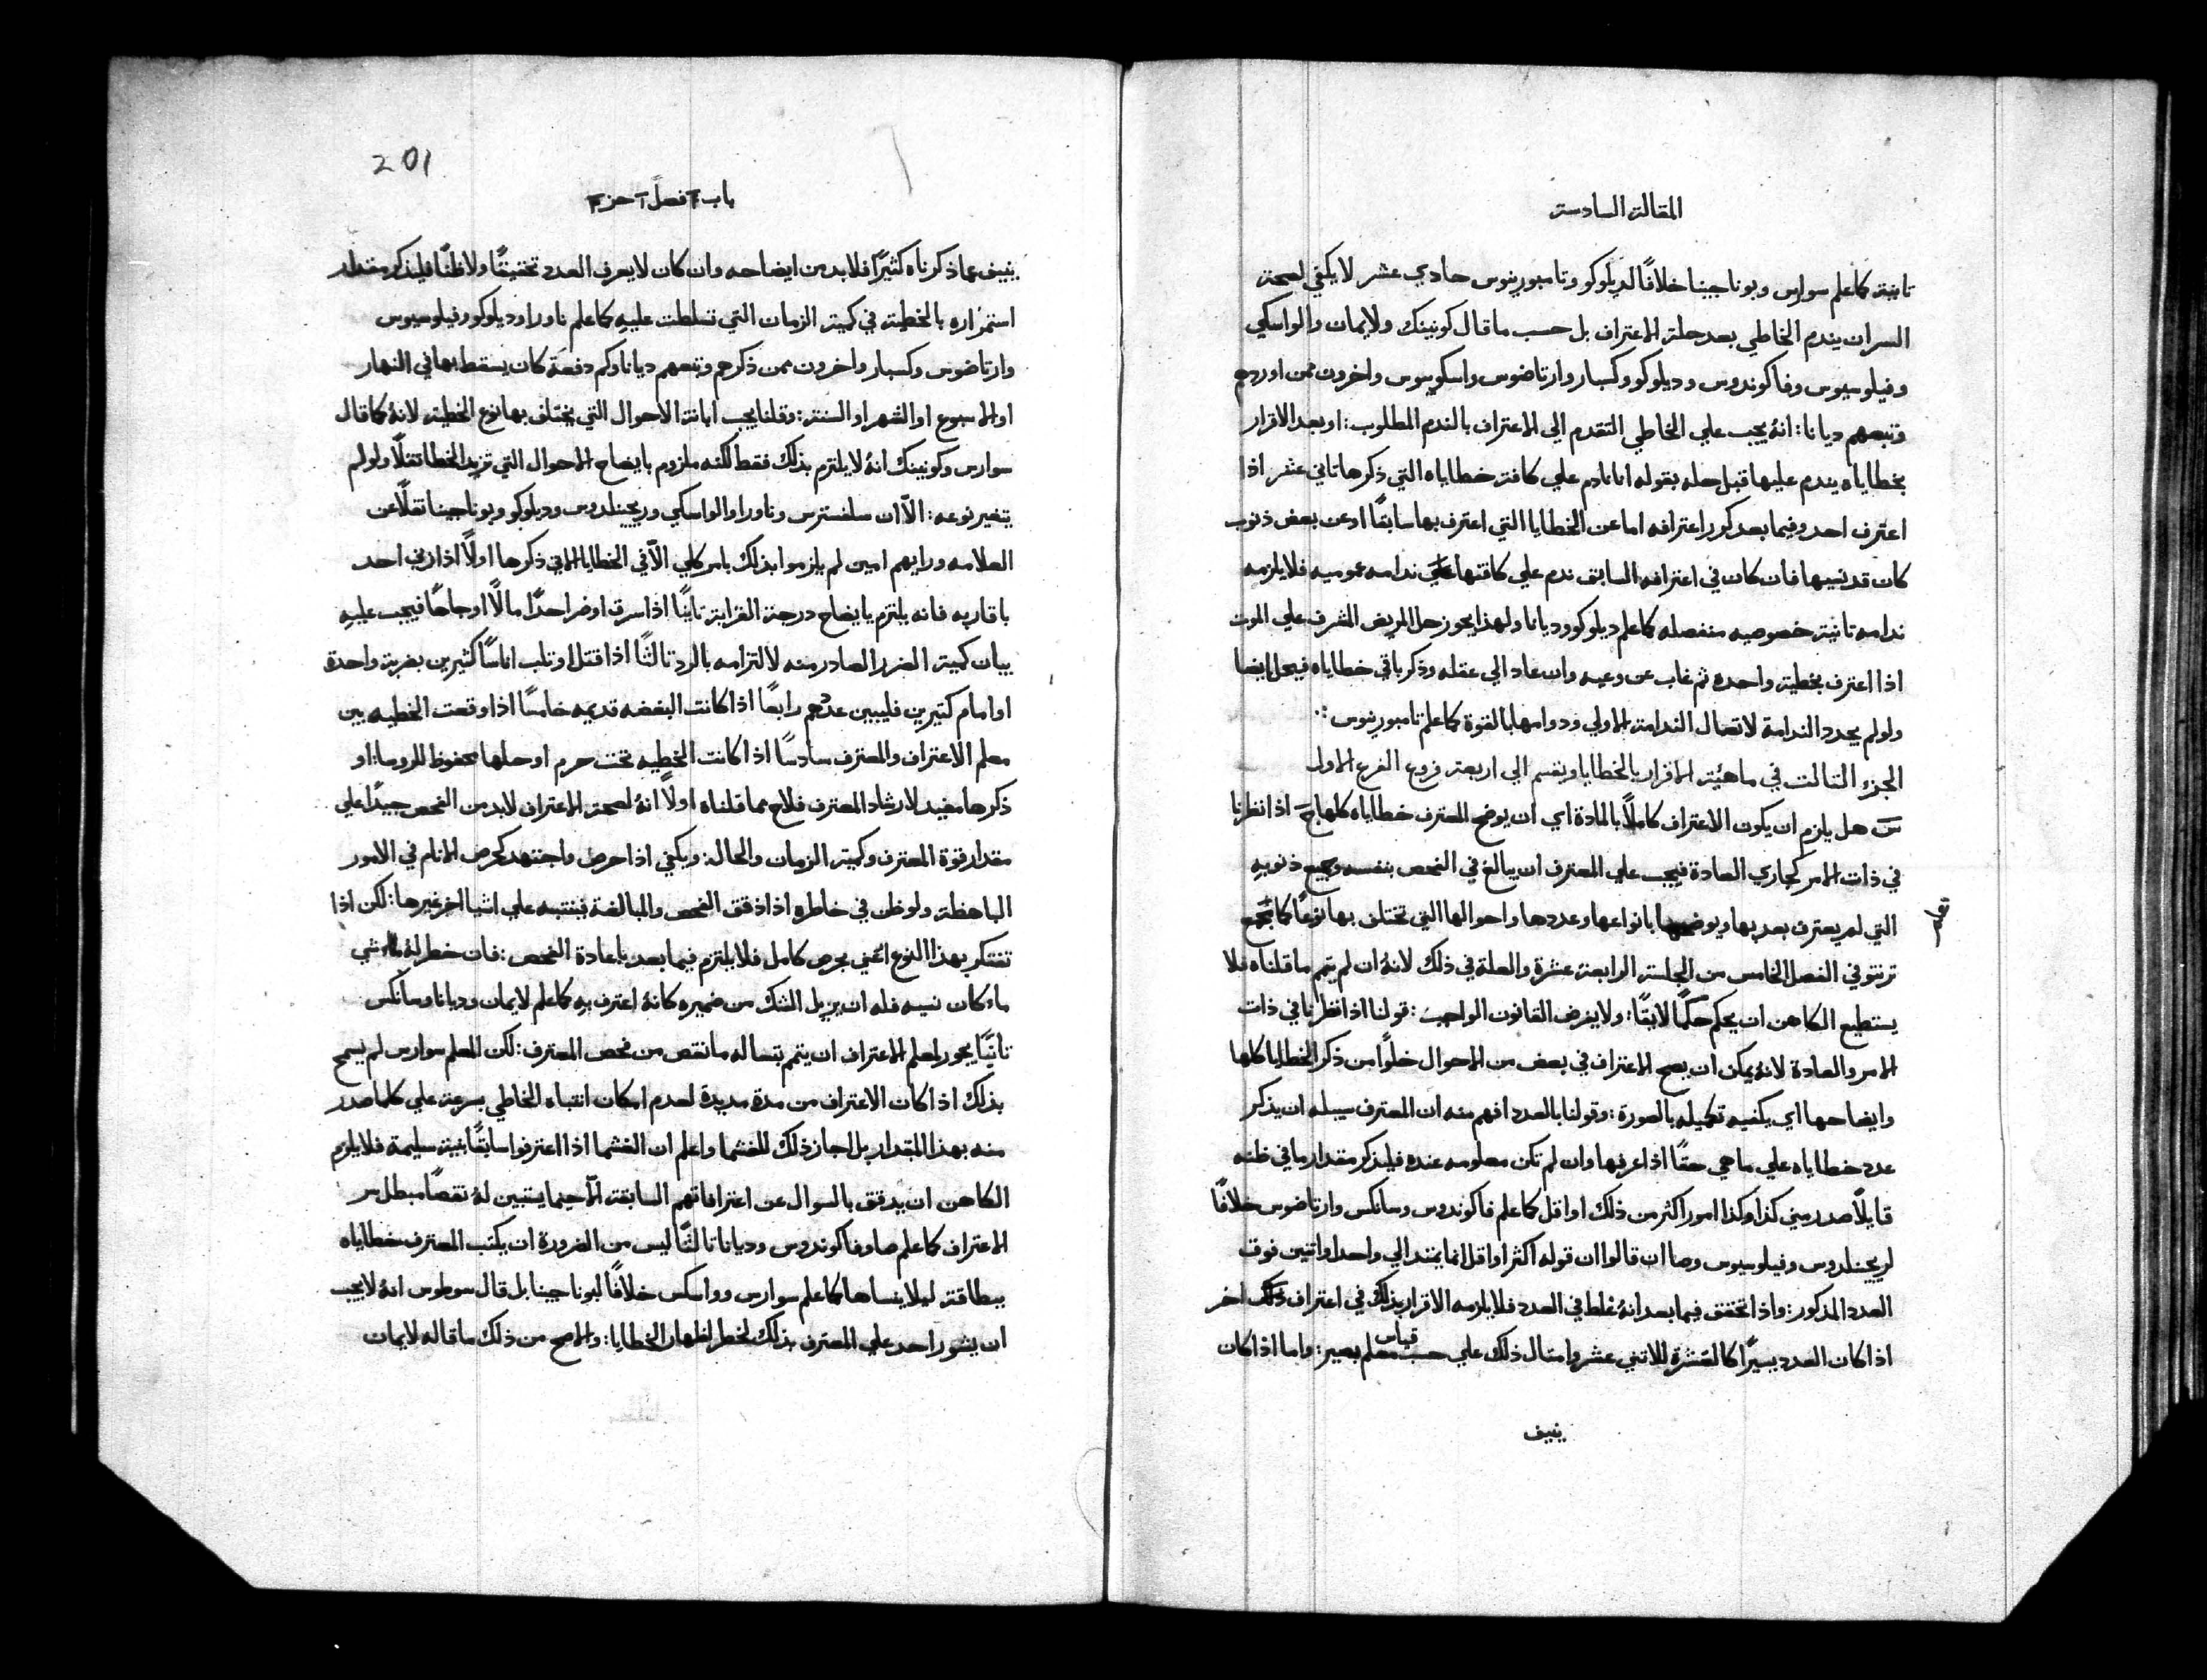 المقالة السادسة
ثانية كما علم سوارس وبوناجينا خلافًا لديلوكو وتامبورينوس حادي عشر لا يكفي لصحة
السر ان يندم الخاطي بعد حلة الاعتراف بل حسب ما قال كونينك ولايمان والواسكي
وفيلوسيوس وفاكوندوس وديلوكو وكسبار وارتاضوس واسكوبوس واخرون ممن اوردهم
وتبعهم ديانا: انهُ يجب علي الخاطي التقدم الي الاعتراف بالندم المطلوب: او بعد الاقرار
بخطاياه يندم عليها قبل حله بقوله انا نادم علي كافة خطاياه التي ذكرها ثاني عشر اذا
اعترف احد وفيما بعد كرر اعترافه اما عن الخطايا التي اعترف بها سابقًا او عن بعض ذنوب
كان قد نسيها فان كان في اعترافه السابق ندم علي كافتها ندامه عموميه فلا يلزمه
ندامه ثانية خصوصيه منفصله كما علم ديلوكو وديانا ولهذا يجوز حل المريض المشرف علي الموت
اذا اعترف بخطية واحده ثم غاب عن وعيه وان عاد الي عقله وذكر باقي خطاياه فيحل ايضا
ولو لم يجدد الندامة لاتصال الندامة الاولي ودوامها بالقوة كما علم تامبورينوس :.
الجزء الثالث في ماهئية الاقرار بالخطايا ويقسم الي اربعة فروع الفرع الاول
سَ هل يلزم ان يكون الاعتراف كاملاً بالمادة اي ان يوضح المعترف خطاياه كلها جَ اذا نظرنا
في ذات الامر كجاري العادة فيجب علي المعترف ان يبالغ في الفحص بنفسه وجميع ذنوبه
التي لم يعترف بعد بها ويوضحها بانواعها وعددها واحوالها التي تختلف بها نوعًا كما مجمع
تعليم
ترنتو في الفصل الخامس من الجلسة الرابعة عشرة والعلة في ذلك لانهُ ان لم يتمم ما قلناه فلا
يستطيع الكاهن ان يحكم حكمًا لايقًا: ولا يفرض القانون الواجب: قولنا اذا نظرنا في ذات
الامر والعادة لانهُ يمكن ان يصح الاعتراف في بعض من الاحوال خلوًا من ذكر الخطايا كلها
وايضاحها اي يكفيه تكميله بالصورة: وقولنا بالعدد افهم منه ان المعترف سبيله ان يذكر
عدد خطاياه علي ما هي حقًا اذا عرفها وان لم تكن معلومه عنده فليذكر مقدار ما في ظنه
قايلاً صدر مني كذا وكذا امور اكثر من ذلك او اقل كما علم فاكوندوس وسانكس وارتاضوس خلافًا
لريجنلدوس وفيلوسيوس وصا ان قالوا ان قوله اكثر او اقل انما يمتد الي واحد او اثنين فوق
العدد المذكور: واذا تحقق فيما بعد انهُ غلط في العدد فلا يلزمه الاقرار بذلك في اعتراف اخر
اذا كان العدد يسيرًا كالعشرة للاثني عشر وامثال ذلك علي حسب قياس معلم بصير: واما اذا كان
ينيف
201
باب فصل جز
ينيف عما ذكرناه كثيرًا فلا بد من ايضاحه وان كان لا يعرف العدد تحقيقًا ولا ظنًا فليذكر مقدار
استمراره بالخطية في كمية الزمان التي تسلطت عليهِ كما علم ناورا وديلوكو وفيلوسيوس
وارتاضوس وكسبار واخرون ممن ذكرهم وتبعهم ديانا وكم دفعة كان يسقط بها في النهار
او الاسبوع او الشهر او السنة: وقلنا يجب ابانة الاحوال التي يختلف بها نوع الخطية لانهُ كما قال
سوارس وكونينك انهُ لا يلتزم بذلك فقط لكنه ملزوم بايضاح الاحوال التي تزيد الخطا ثقلاً ولو لم
يتغير نوعه: الاّ ان سلفسترس وناورا والواسكي وريجينلدوس وديلوكو وبوناجينا نقلاً عن
العلامه ورايهم امين لم يلزموا بذلك بامر كلي الاّ في الخطايا الاتي ذكرها اولاً اذا زني احد
باقاربه فانه يلتزم بايضاح درجة القرابة ثانيًا اذا سرق او ضر احدًا مالًا او جاهًا فيجب عليهِ
بيان كمية الضرر الصادر منه لالتزامه بالرد ثالثًا اذا قتل او ثلب اناسًا كثيرين بضربة واحدة
او امام كثيرين فليبين عددهم رابعًا اذا كانت البغضه قديمه خامسًا اذا وقعت الخطيه بين
معلم الاعتراف والمعترف سادسًا اذا كانت الخطيه تحت حرم او حلها محفوظ للروسا: او
ذكرها مفيد لارشاد المعترف فلاح مما قلناه اولاً انهُ لصحة الاعتراف لا بد من الفحص جيدًا علي
مقدار قوة المعترف وكمية الزمان والحال: ويكفي اذا حرص واجتهد كحرص الانام في الامور
الباهظة ولو ظن في خاطره اذا دقق الفحص والمبالغة فينتبه علي اشيا اخر غيرها: لكن اذا
تفتكر بهذا النوع اعني بحرص كامل فلا يلتزم فيما بعد باعادة الفحص: فان خطر لهُ شي
ما كان نسيه فله ان يزيل الشك من ضميره كانهُ اعترف بهِ كما علم لايمان وديانا وسانكس
ثانيًا يجوز لمعلم الاعتراف ان يتمم بتساله ما نقص من فحص المعترف: لكن المعلم سوارس لم يسمح
بذلك اذا كان الاعتراف من مدة مديدة لعدم امكان انتباه الخاطي بسرعة علي كلما صدر
منه بهذا المقدار بل اجاز ذلك للغشما واعلم ان الغشما اذا اعترفوا سابقًا بنية سليمة فلا يلزم
الكاهن ان يدقق بالسوال عن اعترافاتهم السابقة الاّ حينما يستبين لهُ نقصًا مبطل سر
الاعتراف كما علم صا وفاكوندوس وديانا ثالثًا ليس من الضرورة ان يكتب المعترف خطاياه
ببطاقة ليلا ينساها كما علم سوارس وواسكس خلافًا لبوناجينا بل قال سوطوس انهُ لا يجب
ان يشور احد علي المعترف بذلك لخطر اظهار الخطايا: والاصح من ذلك ما قاله لايمان